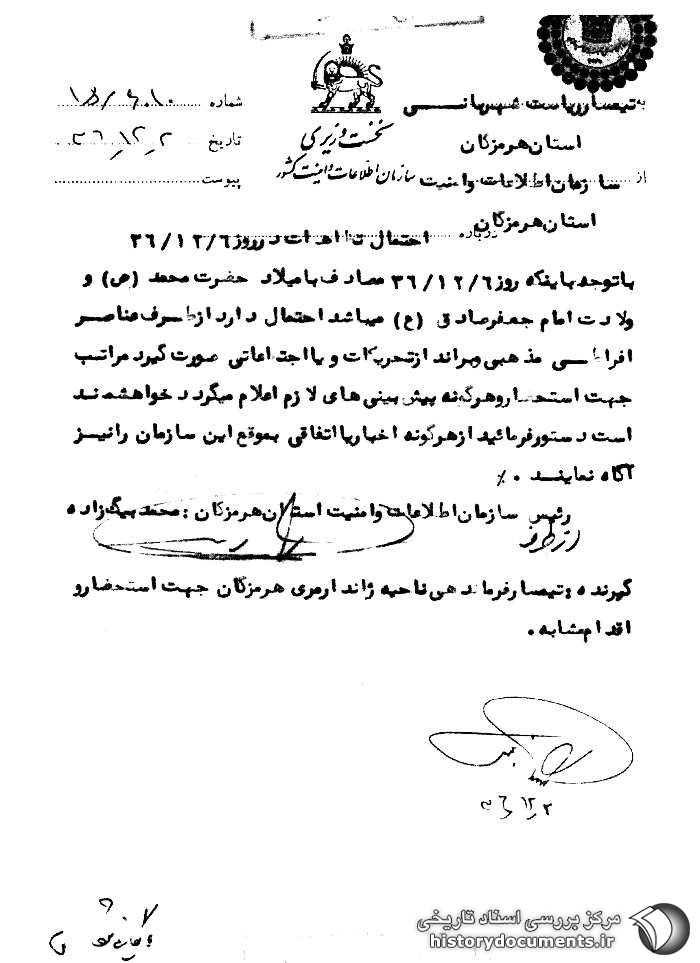 نخست وزیری
سازمان اطلاعات و امنیت کشور
به تیمسار ریاست شهربانی
استان هرمزگان
از سازمان اطلاعات و امنیت
استان هرمزگان
درباره احتمال تظاهرات در روز ۳۶/۱۲/۶
شماره ۶۰۱۰/
تاریخ ۳۶/۱۲/۲
پیوست
با توجه باینکه روز ۳۶/۱۲/۶ مصادف با میلاد حضرت محمد (ص) و
ولادت امام جعفر صادق (ع) میباشد احتمال دارد از طرف عناصر
افراطی مذهبی و براند از تحریکات و یا اجتماعاتی صورت گیرد مراتب
جهت استحضار و هرگونه پیش بینی های لازم اعلام میگردد خواهشمند
است دستور فرمائید از هرگونه اخبار یا اتفاقی بموقع این سازمان را نیز
آگاه نمایند ۰٪
رئیس سازمان اطلاعات و امنیت استان هرمزگان : محمد بیگ زاده
از طرف
گیرنده : تیمسار فرماندهی ناحیه ژاندارمری هرمزگان جهت استحضار و
اقدام مشابه .
۳۶/۱۲/۲
مرکز بررسی اسناد تاریخی
historydocuments.ir